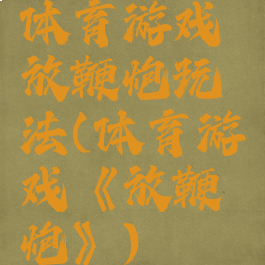 体育游戏
放鞭炮玩
法(体育游
戏《放鞭
炮》)